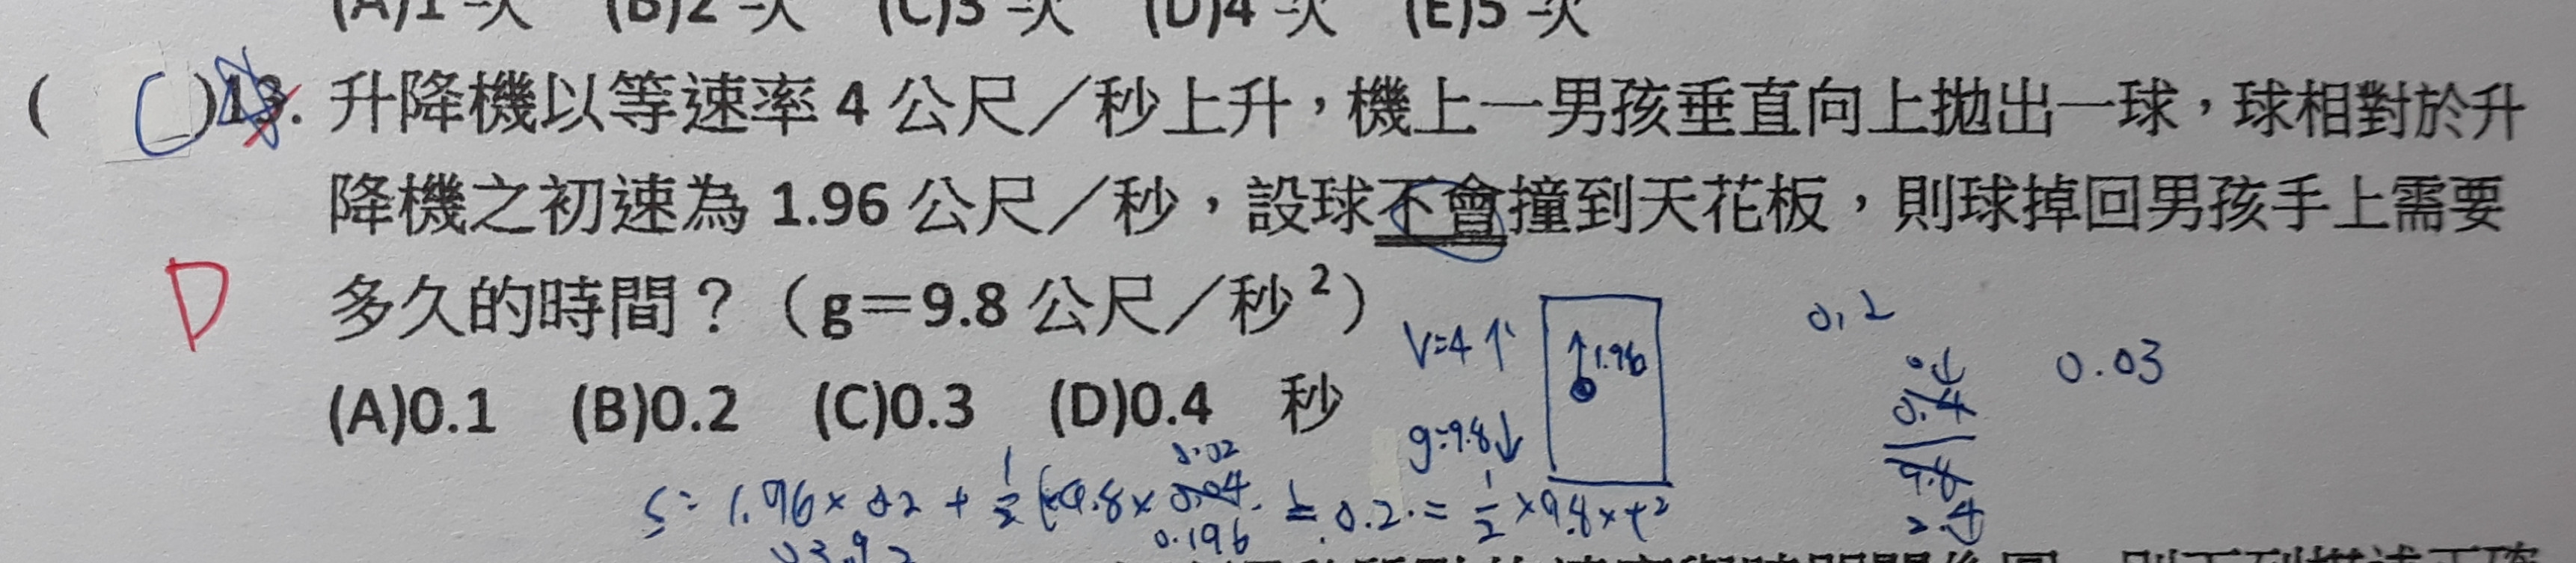 (A)1 次 (B)2 次 (C)3 次 (D)4 次 (E)5 次
( C )13. 升降機以等速率 4 公尺／秒上升，機上一男孩垂直向上拋出一球，球相對於升
降機之初速為 1.96 公尺／秒，設球不會撞到天花板，則球掉回男孩手上需要
D 多久的時間？（g＝9.8 公尺／秒²）
V=4↑ ↑1.96 0.2
0.03
(A)0.1 (B)0.2 (C)0.3 (D)0.4 秒
g=9.8↓
0.02
S= 1.96× 0.2 + 1/2 (-9.8× 0.04 0.2 = 1/2 ×9.8×t²
0.196